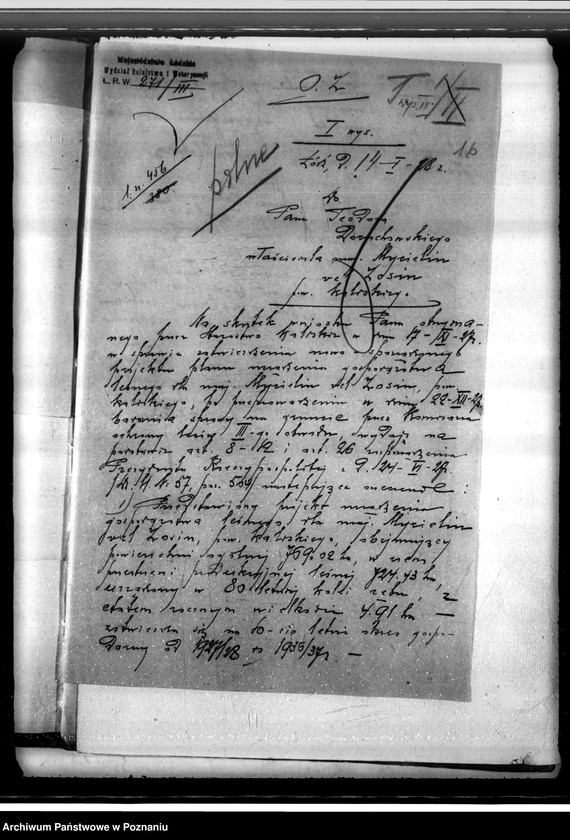 Województwo Łódzkie
Wydział Rolnictwa i Weterynarji
L. R. W. 271/III
O. Z.
I wys.
16
Łódź, d. 14-I-28 r.
l. n. 456
380
pilne
Do
Pana Teodora
Dzierzchowskiego
właściciela maj. Mycielin
vel Zosin
pow. Kaliskiego.
Na skutek wniosku Pana otrzyma-
nego przez Starostwo Kaliskie w dniu 17-XI-27r.
w sprawie zatwierdzenia nowo sporządzonego
projektu planu urządzenia gospodarstwa
leśnego dla maj. Mycielin vel Zosin, pow.
Kaliskiego, po przeprowadzeniu w dniu 22-XII-27r.
badania sprawy na gruncie przez Komisarza
ochrony lasów III-go obwodu, wydaję na
podstawie art. 8-12 i art. 26 rozporządzenia
Prezydenta Rzeczypospolitej z d. 24-VI-27r.
/Dz. U. N. 57, poz. 504/ następujące orzeczenie:
1) Przedstawiony projekt urządzenia
gospodarstwa leśnego, dla maj. Mycielin
vel Zosin, pow. Kaliskiego, obejmujący
powierzchni ogólnej 709.02 ha, w tem
przestrzeni produkcyjnej leśnej 424.43 ha,
urządzony w 80 letniej kolei rębu, z
etatem rocznym wielkości 4.91 ha —
zatwierdza się na 10-cio letni okres gospo-
darczy od 1927/28 do 1936/37 r. —
Archiwum Państwowe w Poznaniu